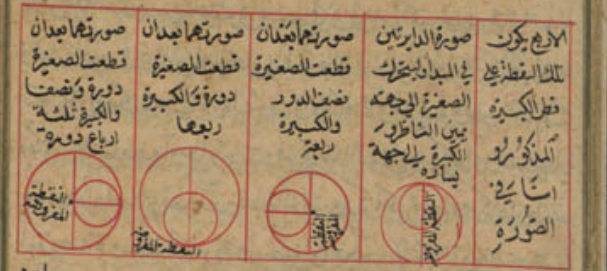 الاربع يكون
تلك النقطة على
قطر الكبيرة
المذكورة و
في
الصورة
صورة الدايرتين
في المبدا وليتحرك
الصغيرة الى جهة
يمين الناظر و
الكبيرة الى جهة
يساره
النقطة المفروضة
صورتهما بعد ان
قطعت الصغيرة
نصف الدور
والكبيرة
ربعه
النقطة المفروضة
صورتهما بعد ان
قطعت الصغيرة
دورة والكبيرة
ربعها
النقطة المفروضة
صورتهما بعد ان
قطعت الصغيرة
دورة ونصفا
والكبيرة ثلثة
ارباع دورة
النقطة
المفروضة